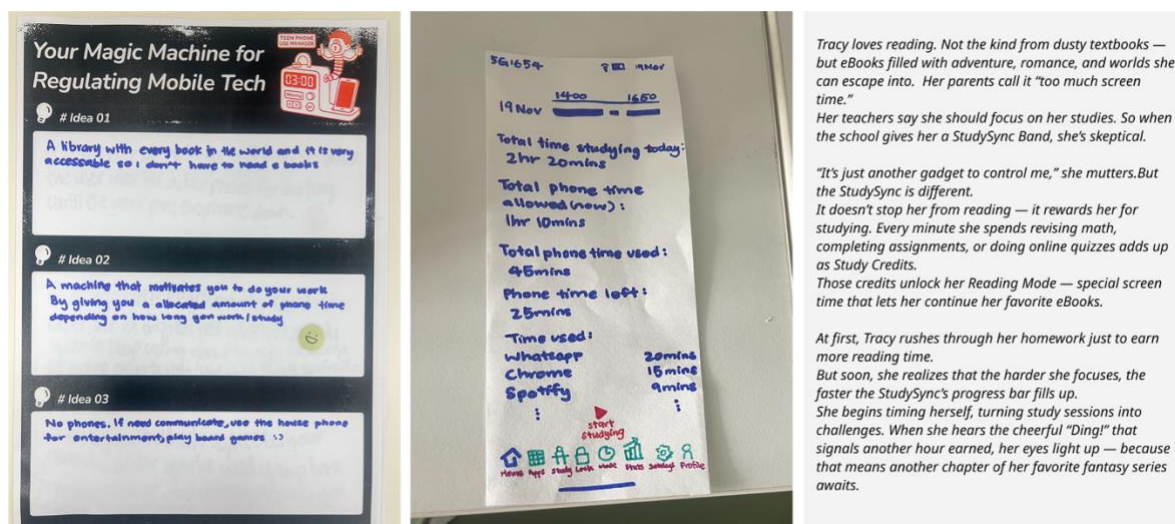 Your Magic Machine for
Regulating Mobile Tech
TEEN PHONE
USE MANAGER
03:00
# Idea 01
A library with every book in the world and it is very
accessable so i don't have to need e books
# Idea 02
A machine that motivates you to do your work
By giving you a allocated amount of phone time
depending on how long you work/study
# Idea 03
No phones. If need communicate, use the house phone
for entertainment, play board games :)
5G 1654
19 Nov
1400 1650
19 Nov
Total time studying today:
2hr 20mins
Total phone time
allowed (now):
1hr 10mins
Total phone time used:
45mins
Phone time left:
25mins
Time used:
Whatsapp 20mins
Chrome 15mins
Spotify 9mins
start
studying
Home Apps Study Lock Mode Stats Settings Profile
Tracy loves reading. Not the kind from dusty textbooks —
but eBooks filled with adventure, romance, and worlds she
can escape into. Her parents call it "too much screen
time."
Her teachers say she should focus on her studies. So when
the school gives her a StudySync Band, she's skeptical.
"It's just another gadget to control me," she mutters.But
the StudySync is different.
It doesn't stop her from reading — it rewards her for
studying. Every minute she spends revising math,
completing assignments, or doing online quizzes adds up
as Study Credits.
Those credits unlock her Reading Mode — special screen
time that lets her continue her favorite eBooks.
At first, Tracy rushes through her homework just to earn
more reading time.
But soon, she realizes that the harder she focuses, the
faster the StudySync's progress bar fills up.
She begins timing herself, turning study sessions into
challenges. When she hears the cheerful "Ding!" that
signals another hour earned, her eyes light up — because
that means another chapter of her favorite fantasy series
awaits.